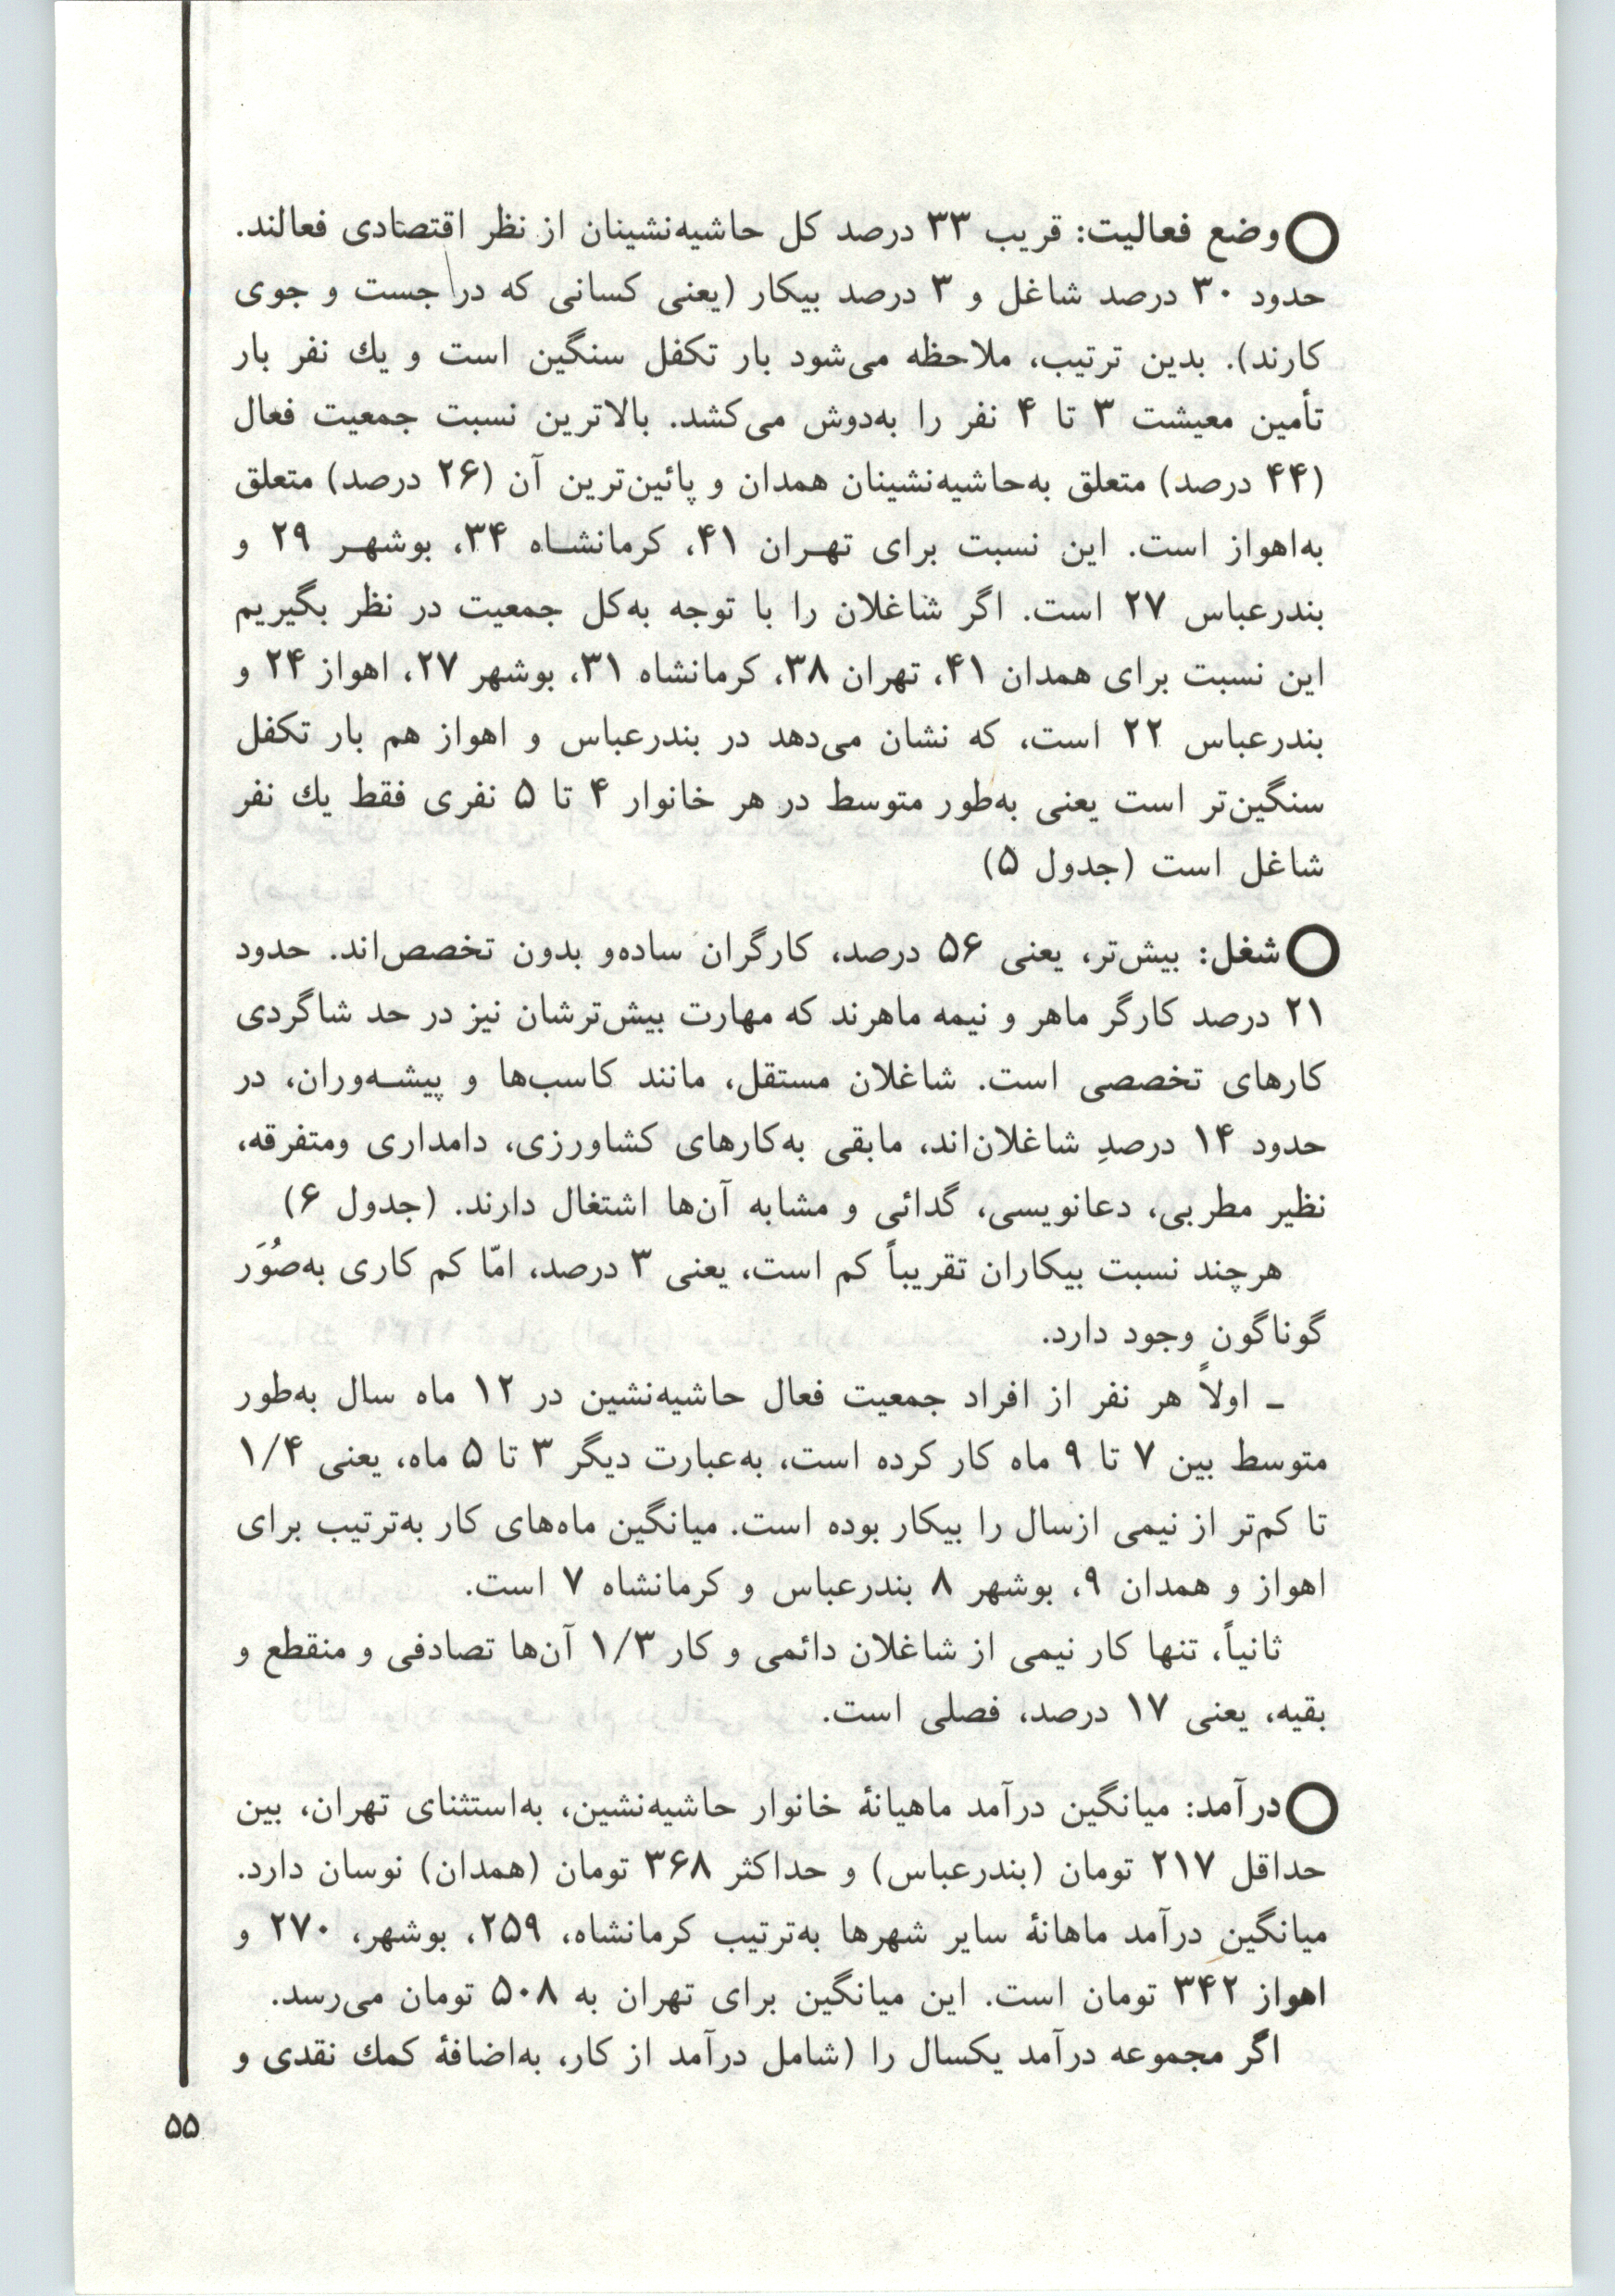 ○ وضع فعالیت: قریب ۳۳ درصد کل حاشیه‌نشینان از نظر اقتصادی فعالند.
حدود ۳۰ درصد شاغل و ۳ درصد بیکار (یعنی کسانی که در جست و جوی
کارند). بدین ترتیب، ملاحظه می‌شود بار تکفل سنگین است و یك نفر بار
تأمین معیشت ۳ تا ۴ نفر را به‌دوش می‌کشد. بالاترین نسبت جمعیت فعال
(۴۴ درصد) متعلق به‌حاشیه‌نشینان همدان و پائین‌ترین آن (۲۶ درصد) متعلق
به‌اهواز است. این نسبت برای تهـران ۴۱، کرمانشـاه ۳۴، بوشهـر ۲۹ و
بندرعباس ۲۷ است. اگر شاغلان را با توجه به‌کل جمعیت در نظر بگیریم
این نسبت برای همدان ۴۱، تهران ۳۸، کرمانشاه ۳۱، بوشهر ۲۷، اهواز ۲۴ و
بندرعباس ۲۲ است، که نشان می‌دهد در بندرعباس و اهواز هم بار تکفل
سنگین‌تر است یعنی به‌طور متوسط در هر خانوار ۴ تا ۵ نفری فقط یك نفر
شاغل است (جدول ۵)
○ شغل: بیش‌تر، یعنی ۵۶ درصد، کارگران ساده‌و بدون تخصص‌اند. حدود
۲۱ درصد کارگر ماهر و نیمه ماهرند که مهارت بیش‌ترشان نیز در حد شاگردی
کارهای تخصصی است. شاغلان مستقل، مانند کاسب‌ها و پیشـه‌وران، در
حدود ۱۴ درصدِ شاغلان‌اند، مابقی به‌کارهای کشاورزی، دامداری ومتفرقه،
نظیر مطربی، دعانویسی، گدائی و مشابه آن‌ها اشتغال دارند. (جدول ۶)
هرچند نسبت بیکاران تقریباً کم است، یعنی ۳ درصد، امّا کم کاری به‌صُوَر
گوناگون وجود دارد.
ـ اولاً هر نفر از افراد جمعیت فعال حاشیه‌نشین در ۱۲ ماه سال به‌طور
متوسط بین ۷ تا ۹ ماه کار کرده است، به‌عبارت دیگر ۳ تا ۵ ماه، یعنی ۱/۴
تا کم‌تر از نیمی ازسال را بیکار بوده است. میانگین ماه‌های کار به‌ترتیب برای
اهواز و همدان ۹، بوشهر ۸ بندرعباس و کرمانشاه ۷ است.
ثانیاً، تنها کار نیمی از شاغلان دائمی و کار ۱/۳ آن‌ها تصادفی و منقطع و
بقیه، یعنی ۱۷ درصد، فصلی است.
○ درآمد: میانگین درآمد ماهیانهٔ خانوار حاشیه‌نشین، به‌استثنای تهران، بین
حداقل ۲۱۷ تومان (بندرعباس) و حداکثر ۳۶۸ تومان (همدان) نوسان دارد.
میانگین درآمد ماهانهٔ سایر شهرها به‌ترتیب کرمانشاه، ۲۵۹، بوشهر، ۲۷۰ و
اهواز ۳۴۲ تومان است. این میانگین برای تهران به ۵۰۸ تومان می‌رسد.
اگر مجموعه درآمد یکسال را (شامل درآمد از کار، به‌اضافهٔ کمك نقدی و
۵۵